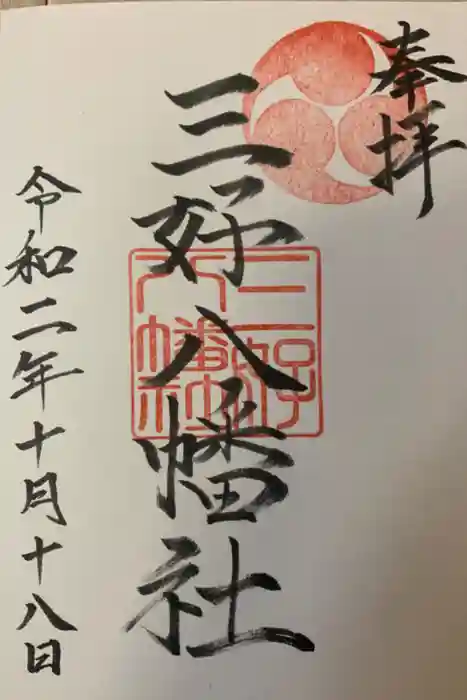 奉拝
三好八幡社
三好
八幡社
令和二年十月十八日